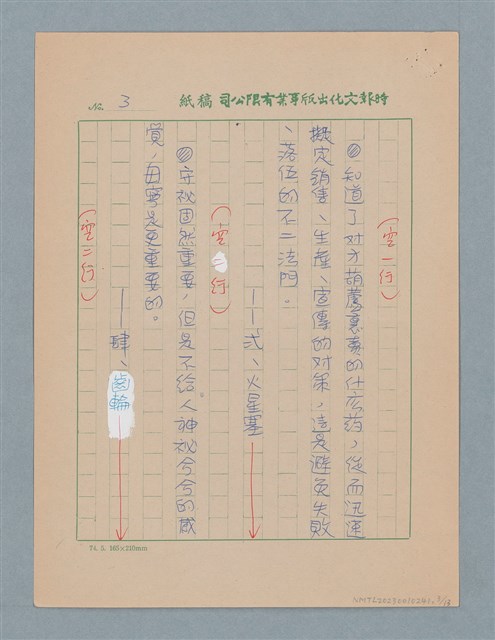 時報文化出版事業有限公司 稿紙
No. 3
(空一行)
◎知道了对方葫蘆裏賣的什么药，從而迅速
擬定銷售、生產、宣傳的对策，這是避免失敗
、落伍的不二法門。
——弍、火星塞
(空二行)
◎守秘固然重要，但是不給人神秘兮兮的感
覺，毋寧是更重要的。
——肆、齒輪
(空二行)
74. 5. 165×210mm
3/18